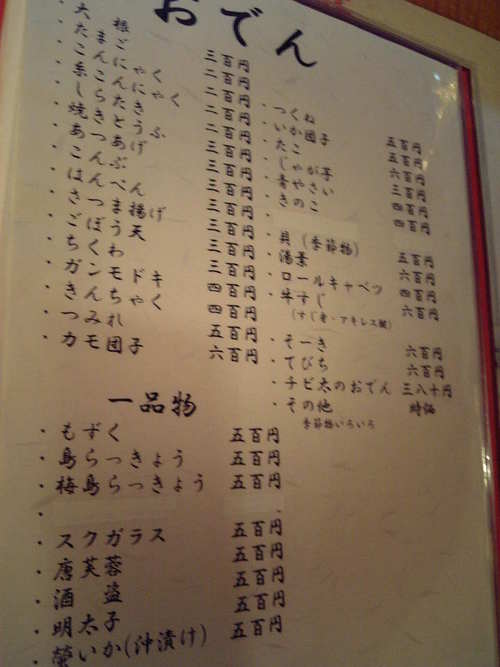 おでん
・大根 三百円
・たまご 二百円
・こんにゃく 二百円
・糸こんにゃく 二百円
・しらたき 二百円
・焼きとうふ 三百円
・あつあげ 三百円
・こんぶ 三百円
・はんぺん 三百円
・さつま揚げ 三百円
・ごぼう天 三百円
・ちくわ 三百円
・ガンモドキ 四百円
・きんちゃく 四百円
・つみれ 五百円
・カモ団子 六百円
・つくね 五百円
・いか団子 五百円
・たこ 六百円
・じゃが芋 三百円
・青やさい 四百円
・きのこ 四百円
・
・貝（季節物） 五百円
・湯葉 六百円
・ロールキャベツ 四百円
・牛すじ 六百円
・そーき 六百円
・てびち 六百円
・チビ太のおでん 三八十円
・その他 時価
季節物いろいろ
一品物
・もずく 五百円
・島らっきょう 五百円
・梅島らっきょう 五百円
・
・スクガラス 五百円
・唐芙蓉 五百円
・酒盗 五百円
・明太子 五百円
・螢いか(沖漬け) 五百円